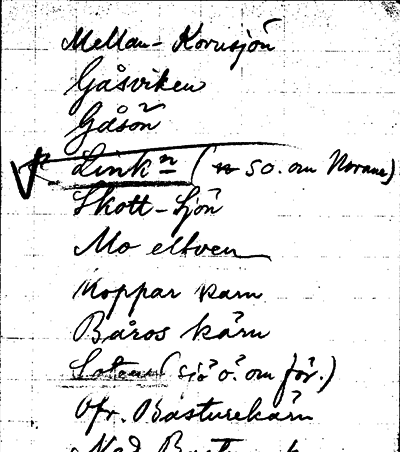 Mellan-Kornsjön
Gåsviken
Gåsön
Link n (n so. om Norane)
Skott-Sjön
Mo elfven
Koppar karn
Båros kärn
(sjö o. om för.)
Öfr. Bästurekärn
Ned. Bastu